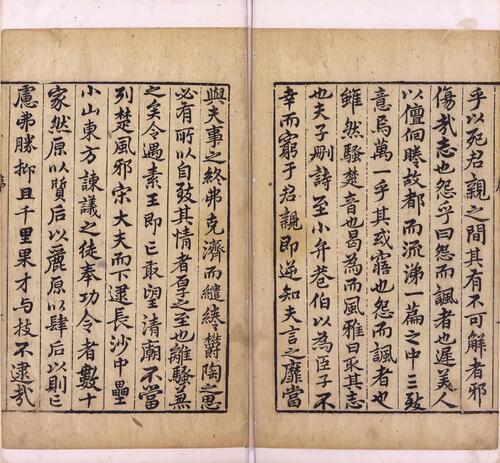 乎以死君親之間其有不可解者邪
傷哉志也怨乎曰怨而諷者也遲美人
以儃佪睠故都而流涕一篇之中三致
意焉萬一乎其或寤也怨而諷者也
雖然騷楚音也曷為而風雅曰取其志
也夫子刪詩至小弁巷伯以為臣子不
幸而窮于君親即逆知夫言之靡當
與夫事之終弗克濟而繾綣欝陶之思
必有所以自致其情者厚之至也離騷無
之矣令遇素王即亡取望清廟不當
列楚風邪宋大夫而下逮長沙中壘
小山東方諫議之徒奉功令者數十
家然原以質后以麗原以肆后以則亡
慮弗勝抑且千里果才与技不逮哉